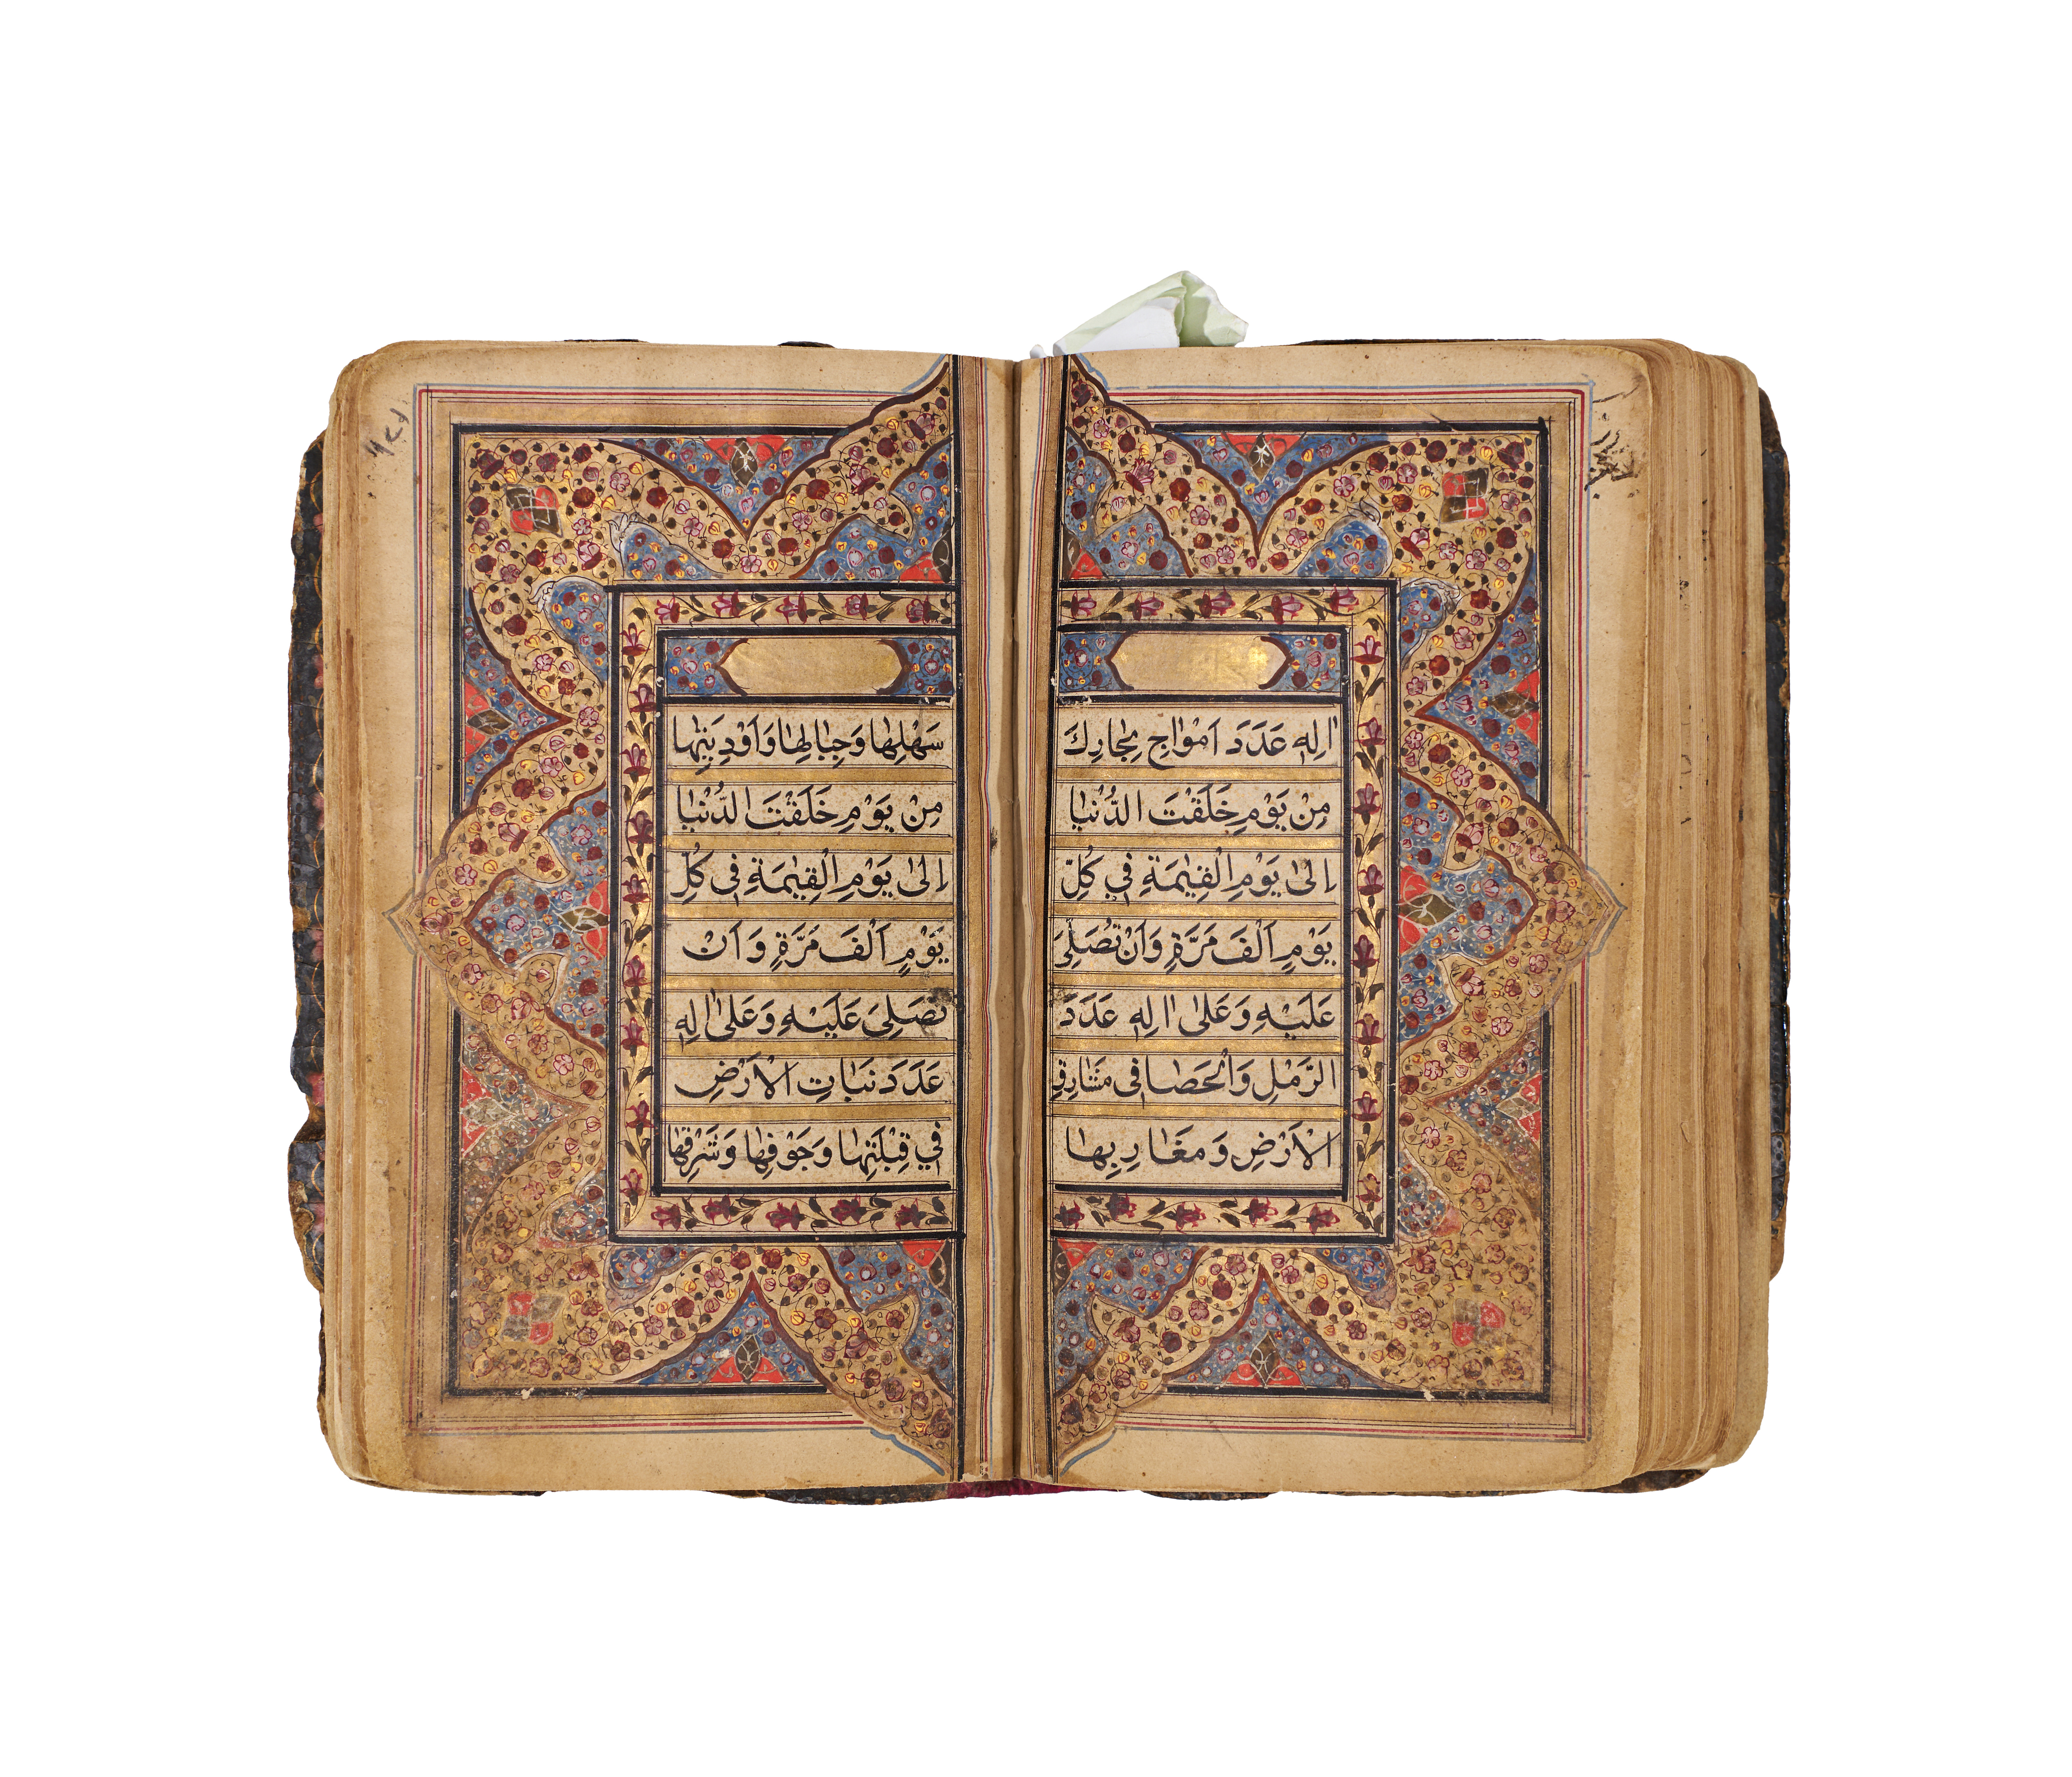 اٰلِهٖ عَدَدَ اَمْوَاجِ بِحَارِكَ
مِنْ يَوْمِ خَلَقْتَ الدُّنْيَا
اِلىٰ يَوْمِ الْقِيٰمَةِ فِي كُلِّ
يَوْمٍ اَلْفَ مَرَّةٍ وَاَنْ تُصَلِّىَ
عَلَيْهِ وَعَلىٰ اٰلِهٖ عَدَدَ
الرَّمْلِ وَالْحَصَا فِى مَشَارِقِ
الْاَرْضِ وَمَغَارِبِهَا
سَهْلِهَا وَجِبَالِهَا وَاَوْدِيَتِهَا
مِنْ يَوْمِ خَلَقْتَ الدُّنْيَا
اِلىٰ يَوْمِ الْقِيٰمَةِ فِي كُلِّ
يَوْمٍ اَلْفَ مَرَّةٍ وَاَنْ
تُصَلِّىَ عَلَيْهِ وَعَلىٰ اٰلِهٖ
عَدَدَ نَبَاتِ الْاَرْضِ
فِي قِبْلَتِهَا وَجَوْفِهَا وَشَرْقِهَا